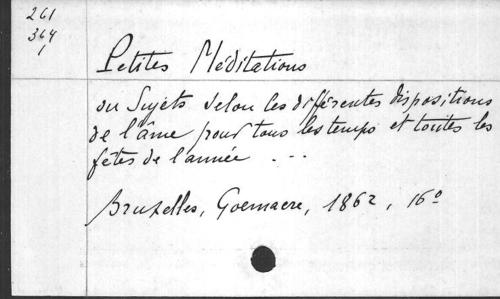 261
364
1
Petites Méditations
ou Sujets selon les différentes dispositions
de l'âme pour tous les temps et toutes les
fêtes de l'année ...
Bruxelles, Goemaere, 1862, 16º